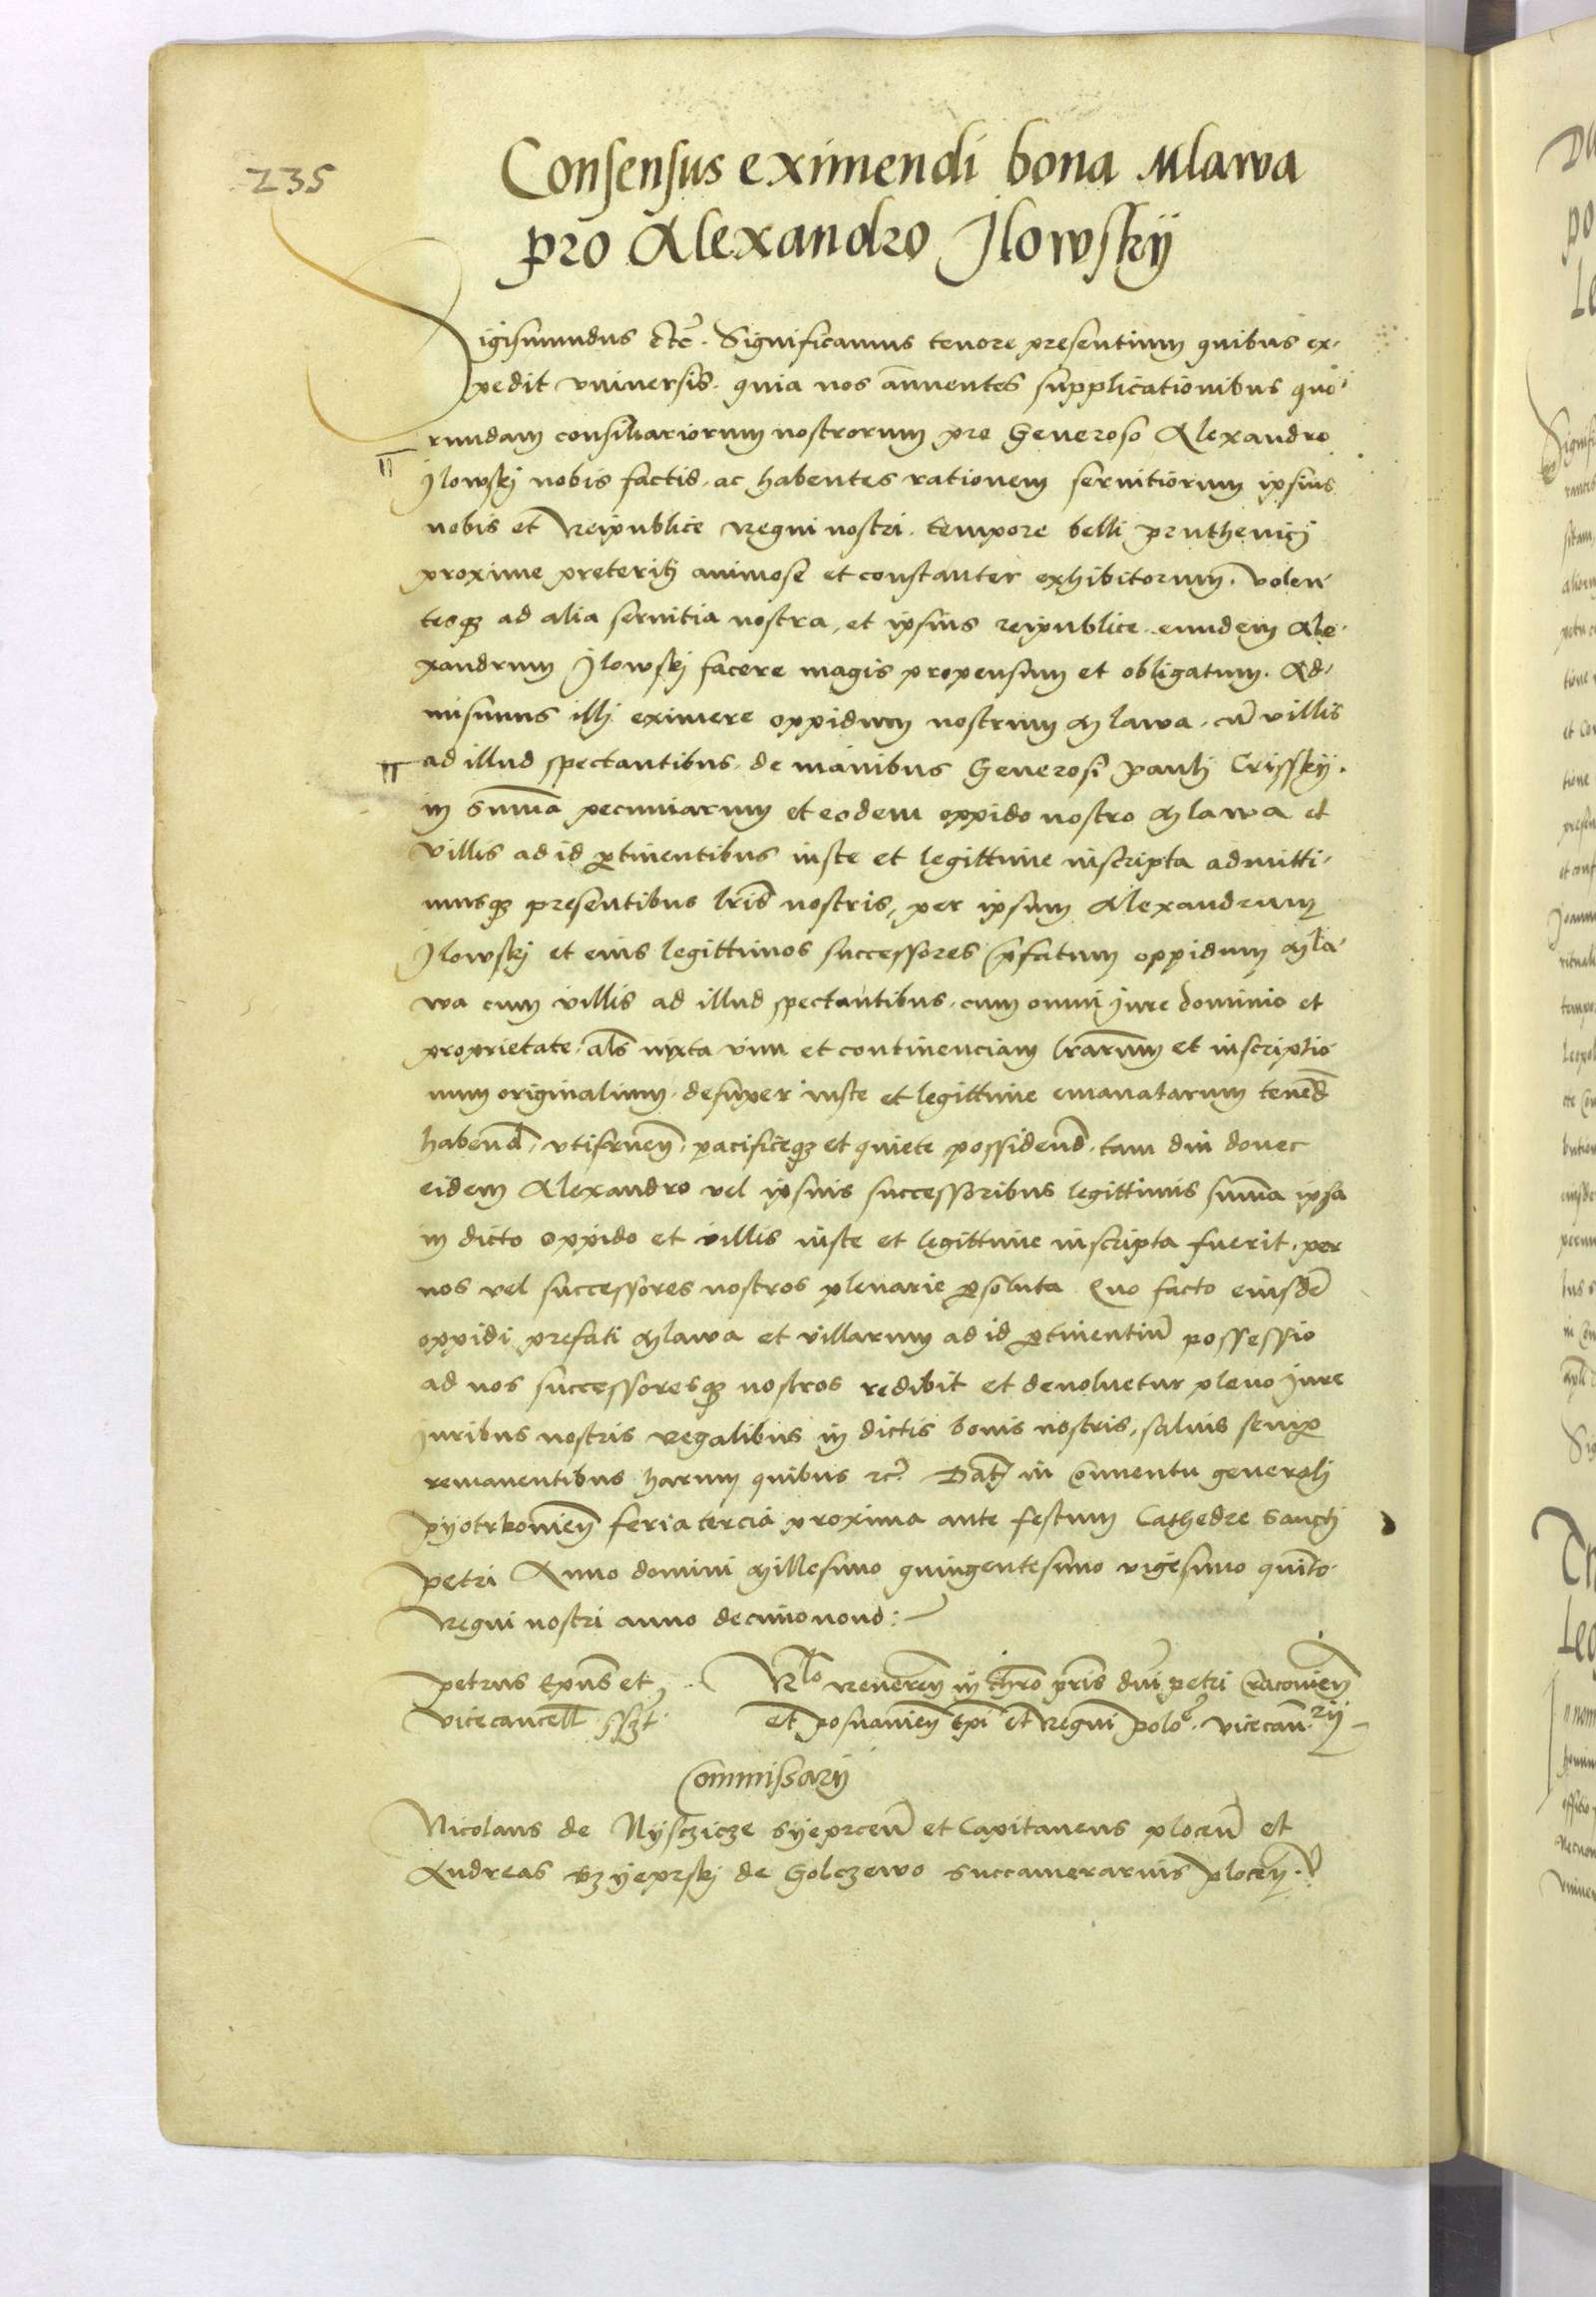 235
Consensus eximendi bona Mlawa
pro Alexandro Jlowskij
Sigismundus etc̃. Significamus tenore presentium quibus ex-
pedit vniversis. quia nos ãnuentes supplicationibus quo-
rundam consiliariorum nostrorum pro Generoso Alexandro
Jlowskj nobis factis. ac habentes rationem seruitiorum ipsius
nobis et Reipublice Regni nostri. tempore belli pruthenicj
proxime preteritj animose et constanter exhibitorum. volen-
tesqȝ ad alia seruitia nostra, et ipsius reipublice. eundem Ale-
xandrum Jlowskj facere magis propensum et obligatum. Ad-
misimus illj eximere oppidum nostrum Mlawa. cũ villis
ad illud spectantibus. de manibus Generosi Paulj Crisskij.
in sum̃a pecuniarum et eodem oppido nostro Mlawa et
villis ad id ꝑtinentibus iuste et legittime inscripta admitti-
musqȝ presentibus lr̃is nostris, per ipsum Alexandrum
Jlowskj et eius legittimos successores p̃fatum oppidum Mla-
wa cum villis ad illud spectantibus. cum omni jure dominio et
proprietate. als̃ iuxta vim et continenciam lr̃arum et inscriptio-
num originalium. desuper iuste et legittime emanatarum tenend̃
habend̃, vtifruen̄. pacificeqȝ et quiete possidend̃. tam diu donec
eidem Alexandro vel ipsius successoribus legittimis sum̃a ipsa
in dicto oppido et villis iuste et legittime inscripta fuerit. per
nos vel successores nostros plenarie ꝑsoluta Quo facto eiusdẽ
oppidi prefati Mlawa et villarum ad id ꝑtinentiũ possessio
ad nos successoresqȝ nostros redibit et deuoluetur pleno jure
juribus nostris regalibus in dictis bonis nostris, saluis semꝑ
remanentibus harum quibus ꝛc̃. Datj in Conuentu generalj
Pyotrkouien̄ feria tercia proxima ante festum Cathedre sanctj
Petri Anno domini Millesimo quingentesimo vigesimo quinto.
Regni nostri anno decimonono:
Petrus Ep̃us et
vicecancell̃ sszt
Rlo Reueren̄ in chr̃o pr̃is dñi Petri Cracouien̄
et Posnanien̄ Ep̃i et Regni Poloe. vicecan̄rij
Commissarij
Nicolaus de Nysczicze Syeprcen̄ et Capitaneus plocen̄ et
Andreas Vzyeprskj de Golczewo succamerarius plocen̄.